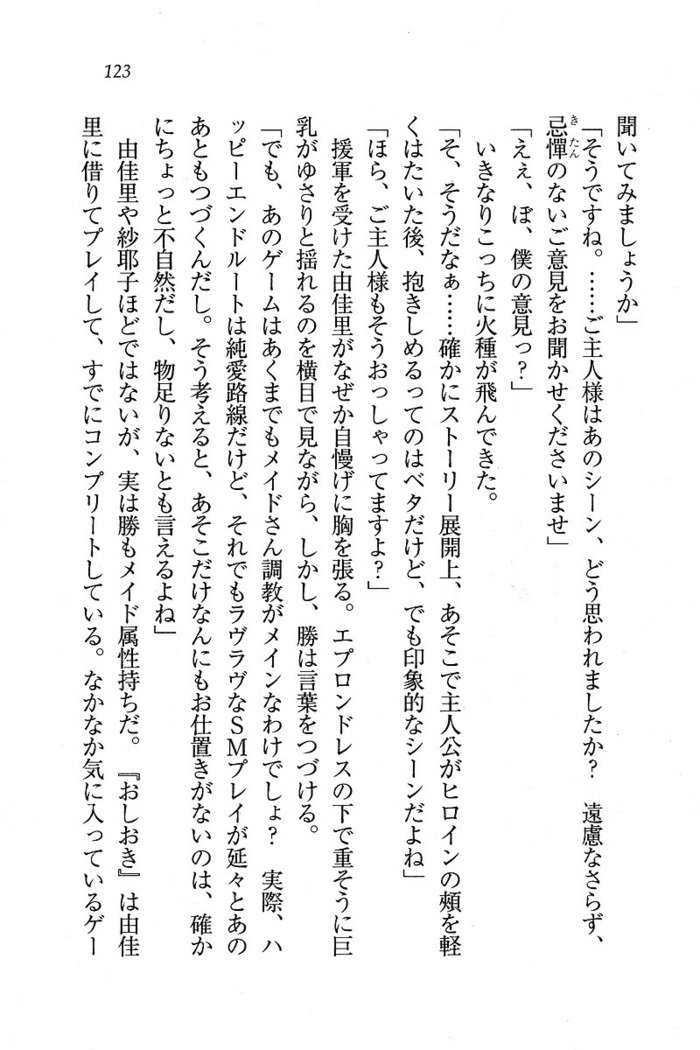 123
聞いてみましょうか」
「そうですね。……ご主人様はあのシーン、どう思われましたか？　遠慮なさらず、
忌憚のないご意見をお聞かせくださいませ」
きたん
「えぇ、ぼ、僕の意見っ？」
いきなりこっちに火種が飛んできた。
「そ、そうだなぁ……確かにストーリー展開上、あそこで主人公がヒロインの頰を軽
くはたいた後、抱きしめるってのはベタだけど、でも印象的なシーンだよね」
「ほら、ご主人様もそうおっしゃってますよ？」
援軍を受けた由佳里がなぜか自慢げに胸を張る。エプロンドレスの下で重そうに巨
乳がゆさりと揺れるのを横目で見ながら、しかし、勝は言葉をつづける。
「でも、あのゲームはあくまでもメイドさん調教がメインなわけでしょ？　実際、ハ
ッピーエンドルートは純愛路線だけど、それでもラヴラヴなＳＭプレイが延々とあの
あともつづくんだし。そう考えると、あそこだけなんにもお仕置きがないのは、確か
にちょっと不自然だし、物足りないとも言えるよね」
由佳里や紗耶子ほどではないが、実は勝もメイド属性持ちだ。『おしおき』は由佳
里に借りてプレイして、すでにコンプリートしている。なかなか気に入っているゲー